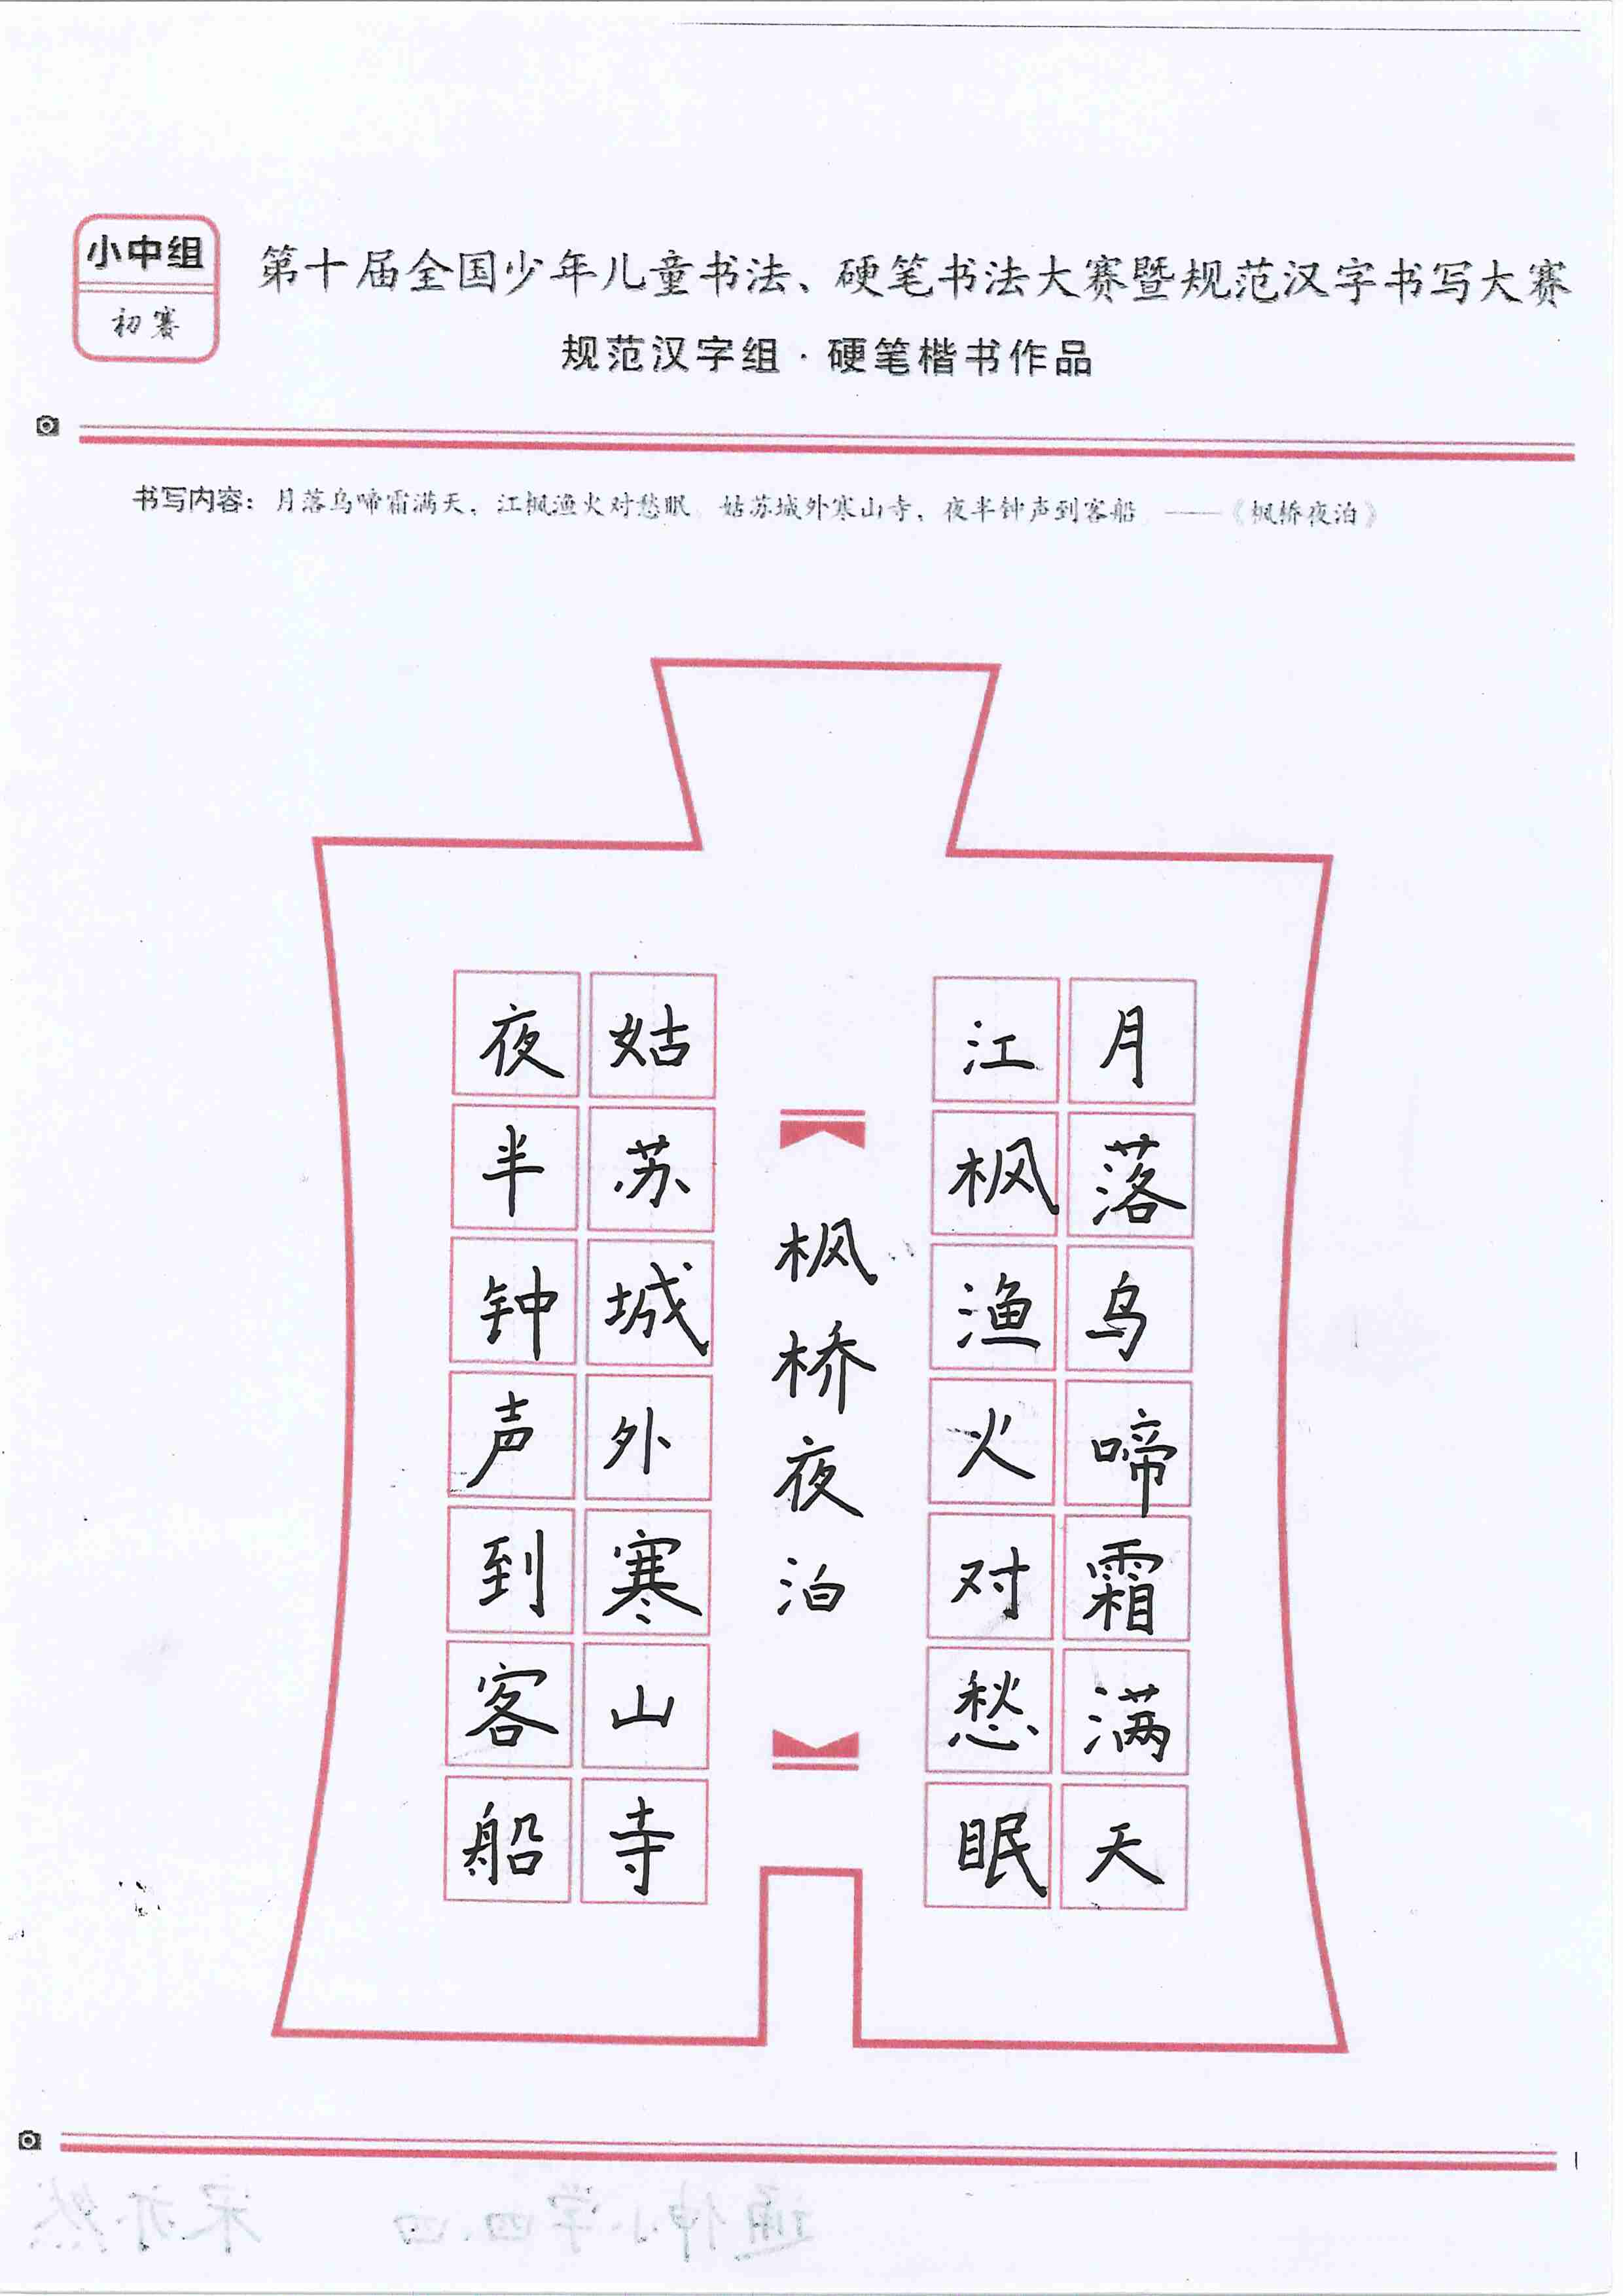 小中组
初赛
第十届全国少年儿童书法、硬笔书法大赛暨规范汉字书写大赛
规范汉字组·硬笔楷书作品
书写内容：月落乌啼霜满天，江枫渔火对愁眠 姑苏城外寒山寺，夜半钟声到客船 ——《枫桥夜泊》
月落乌啼霜满天
江枫渔火对愁眠
枫桥夜泊
姑苏城外寒山寺
夜半钟声到客船
1